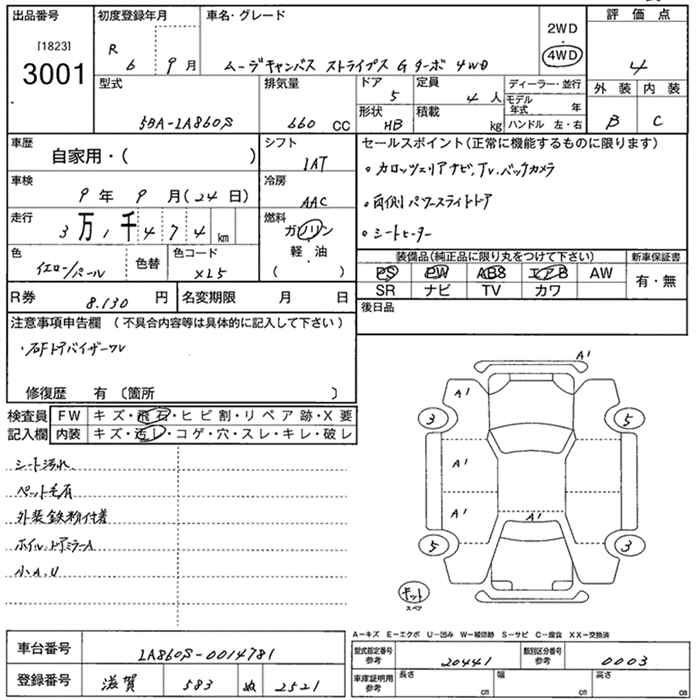 出品番号
[1823]
3001
初度登録年月
R 6 9月
車名・グレード
ムーヴキャンバス ストライプス G ターボ 4WD
2WD
4WD
評価点
4
外装 内装
B C
型式
5BA-LA860S
排気量
660 CC
ドア
5
定員
4人
形状
HB
積載
kg
ディーラー・並行
モデル年式 年
ハンドル 左・右
車歴
自家用・( )
シフト
IAT
車検
9年9月(24日)
冷房
AAC
走行
3万1千474km
燃料
ガソリン
軽・油
( )
色
イエロー/パール
色替
色コード
XL5
R券
8.130円
名変期限 月 日
セールスポイント(正常に機能するものに限ります)
・カロッツェリアナビ,Tv.バックカメラ
・両側パワースライドドア
・シートヒーター
装備品(純正品に限り丸をつけて下さい)
新車保証書
PS PW ABS エアB AW
SR ナビ TV カワ
有・無
後日品
注意事項申告欄(不具合内容等は具体的に記入して下さい)
修復歴 有〔箇所 〕
検査員
記入欄
FW キズ・飛石・ヒビ割・リペア跡・X要
内装 キズ・汚レ・コゲ・穴・スレ・キレ・破レ
シート汚れ
ペット毛有
外装鉄粉付着
ホイル.ドアミラーA
小A.U
A'
A'
3
5
A'
A'
A'
5
3
キット
スペア
A-キズ E-エクボ U-凹み W-補修跡 S-サビ C-腐食 XX-交換済
車台番号
LA860S-0014781
登録番号
滋賀 583 ぬ 2521
型式指定番号
参考
20441
類別区分番号
参考
0003
車庫証明用
参考
長さ cm
幅 cm
高さ cm